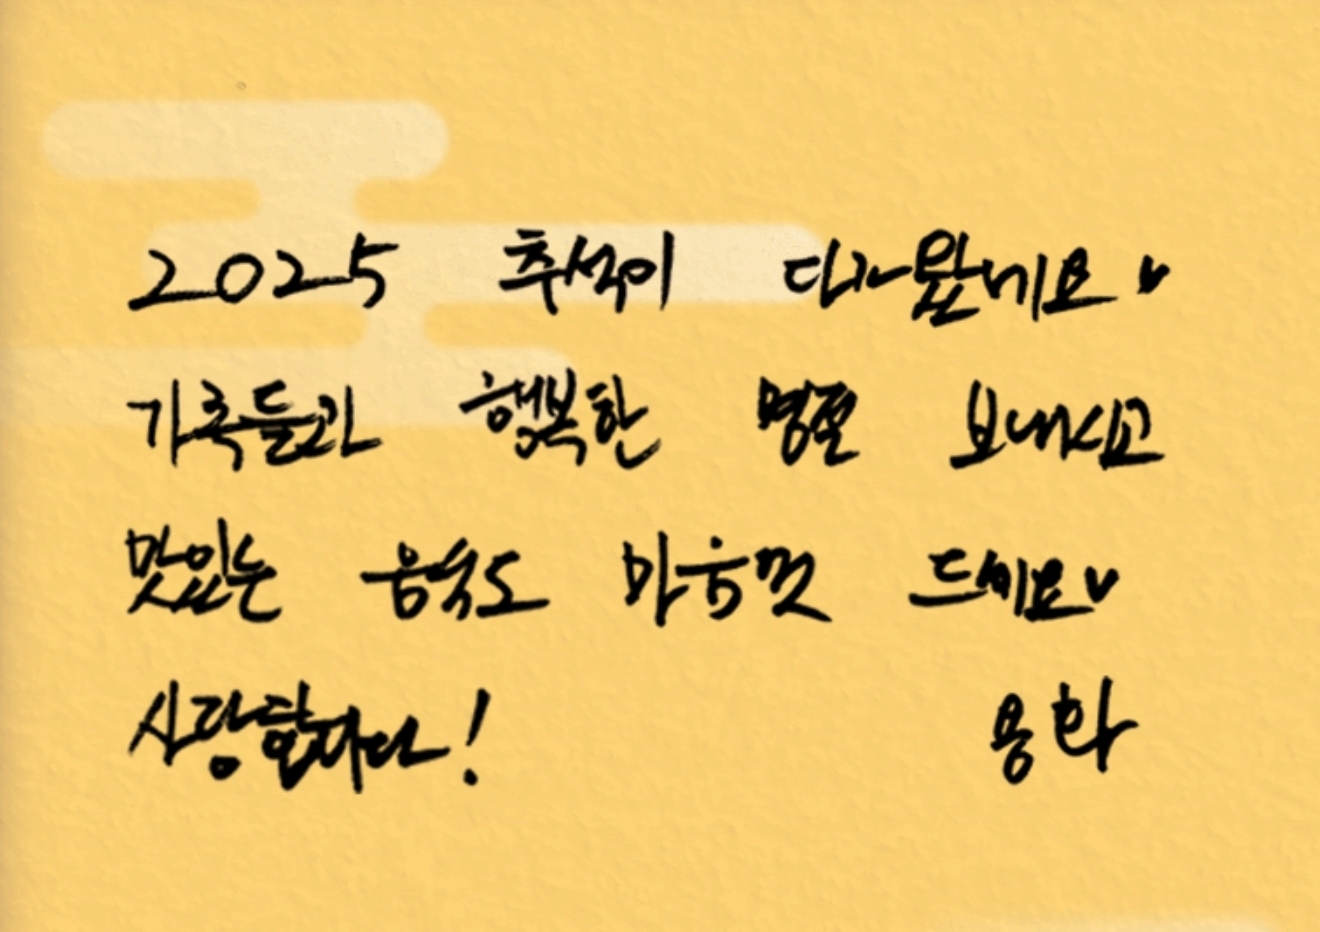 2025 추석이 다가왔네요♥
가족들과 행복한 명절 보내시고
맛있는 음식도 마음껏 드세요♥
사랑합니다! 용화